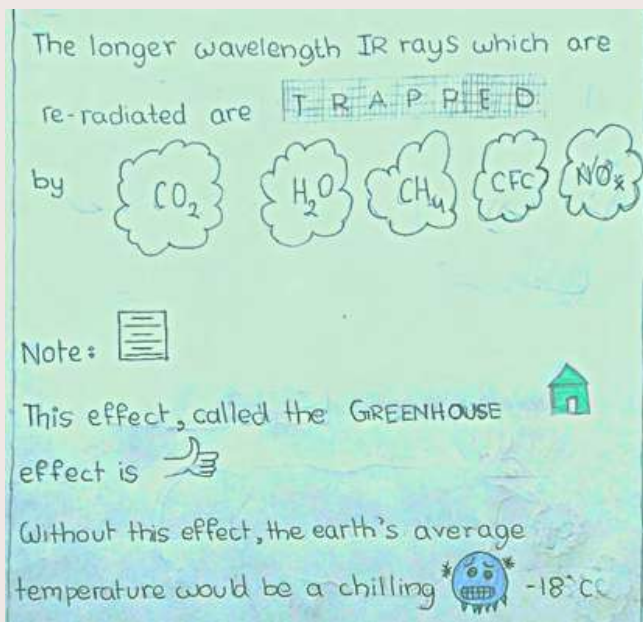 The longer wavelength IR rays which are
re-radiated are TRAPPED
by CO₂ H₂O CH₄ CFC NOₓ
Note:
This effect, called the GREENHOUSE
effect is
Without this effect, the earth's average
temperature would be a chilling -18°C